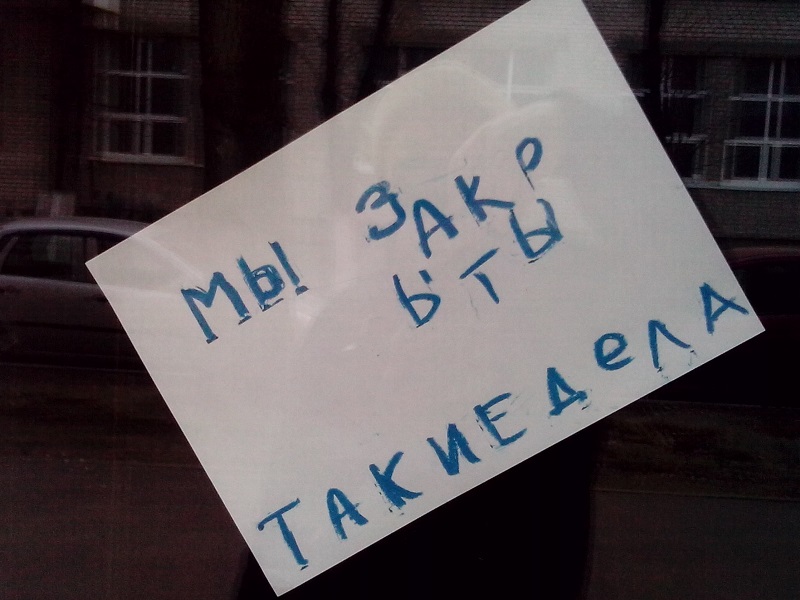 МЫ ЗАКР
ЬТЫ
ТАКИЕДеЛА